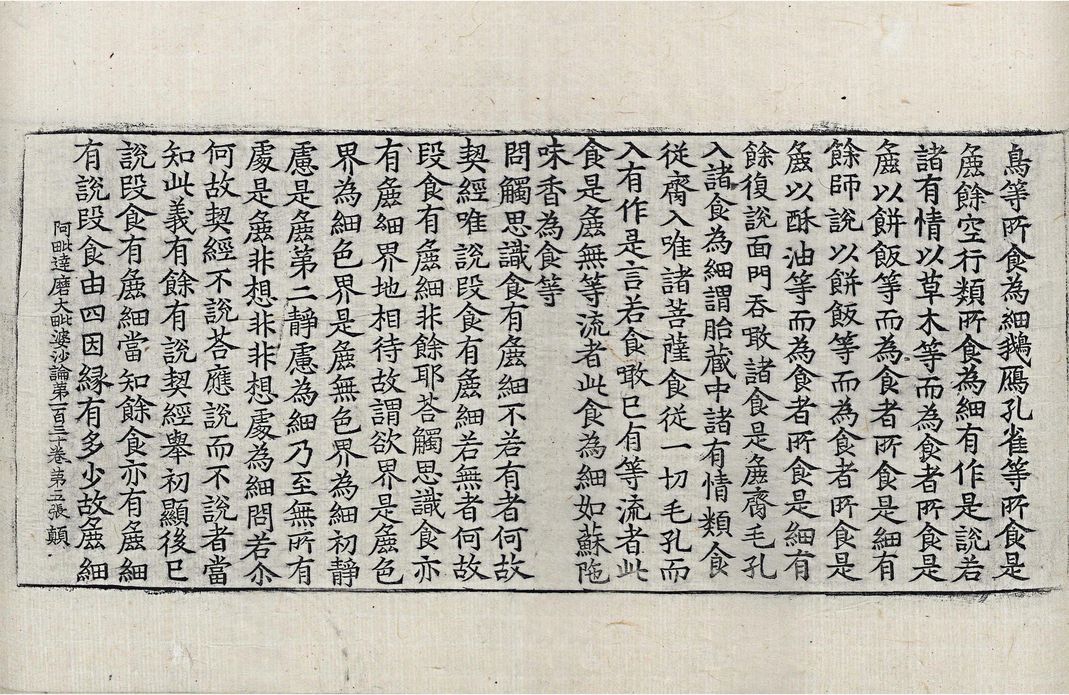 鳥等所食為細鵝鴈孔雀等所食是
麁餘空行類所食為細有作是說若
諸有情以草木等而為食者所食是
麁以餅飯等而為食者所食是細有
餘師說以餅飯等而為食者所食是
麁以酥油等而為食者所食是細有
餘復說面門吞噉諸食是麁齎毛孔
入諸食為細謂胎藏中諸有情類食
從齎入唯諸菩薩食從一切毛孔而
入有作是言若食噉已有等流者此
食是麁無等流者此食為細如蘇陁
味香為食等
問觸思識食有麁細不若有者何故
契經唯說段食有麁細若無者何故
段食有麁細非餘耶荅觸思識食亦
有麁細界地相待故謂欲界是麁色
界為細色界是麁無色界為細初靜
慮是麁第二靜慮為細乃至無所有
處是麁非想非非想處為細問若尒
何故契經不說荅應說而不說者當
知此義有餘有說契經舉初顯後已
說段食有麁細當知餘食亦有麁細
有說段食由四因緣有多少故麁細
阿毗達磨大毗婆沙論第一百三十卷第五張 顛